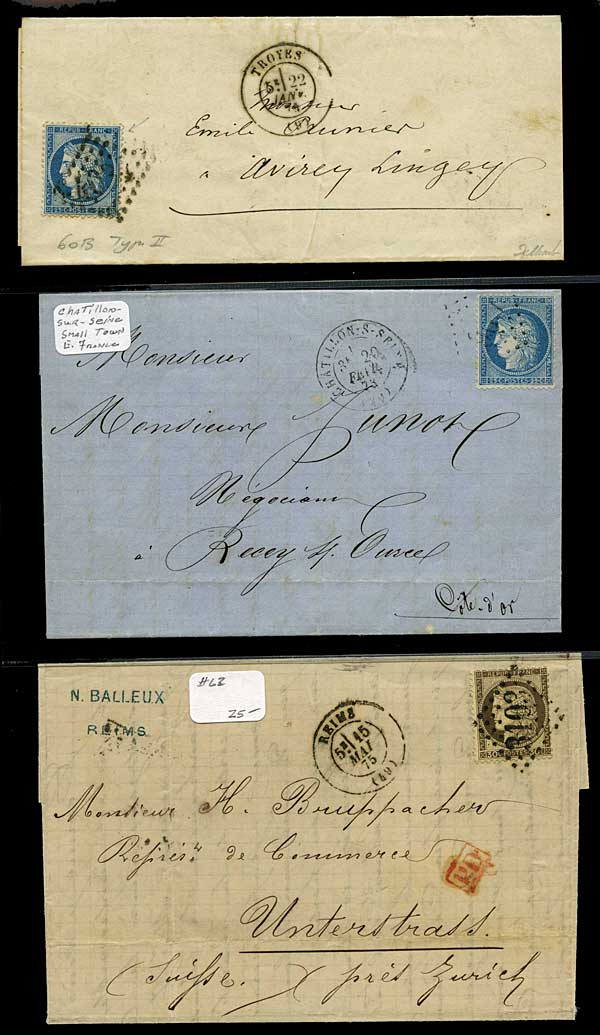 TROYES
5E 22
JANV.
(9)
Monsieur
Emile Munier
à Avirey Lingey
REPUB FRANC
25 C POSTES 25 C
60B Type II
Chatillon-
sur-Seine
Small Town
E. France
CHATILLON-S-SEINE
3E 20
FEVR.
73
REPUB FRANC
25 C POSTES 25 C
Monsieur
Monsieur Junot
Négociant
à Recey s/ Ource
Côte-d'or
N. BALLEUX
REIMS
#62
25-
REIMS
5E 15
MAI
75
(49)
REPUB FRANC
3103
Monsieur H. Bruppacher
Représt. de Commerce
PD
Unterstrass
(Suisse.) près Zurich